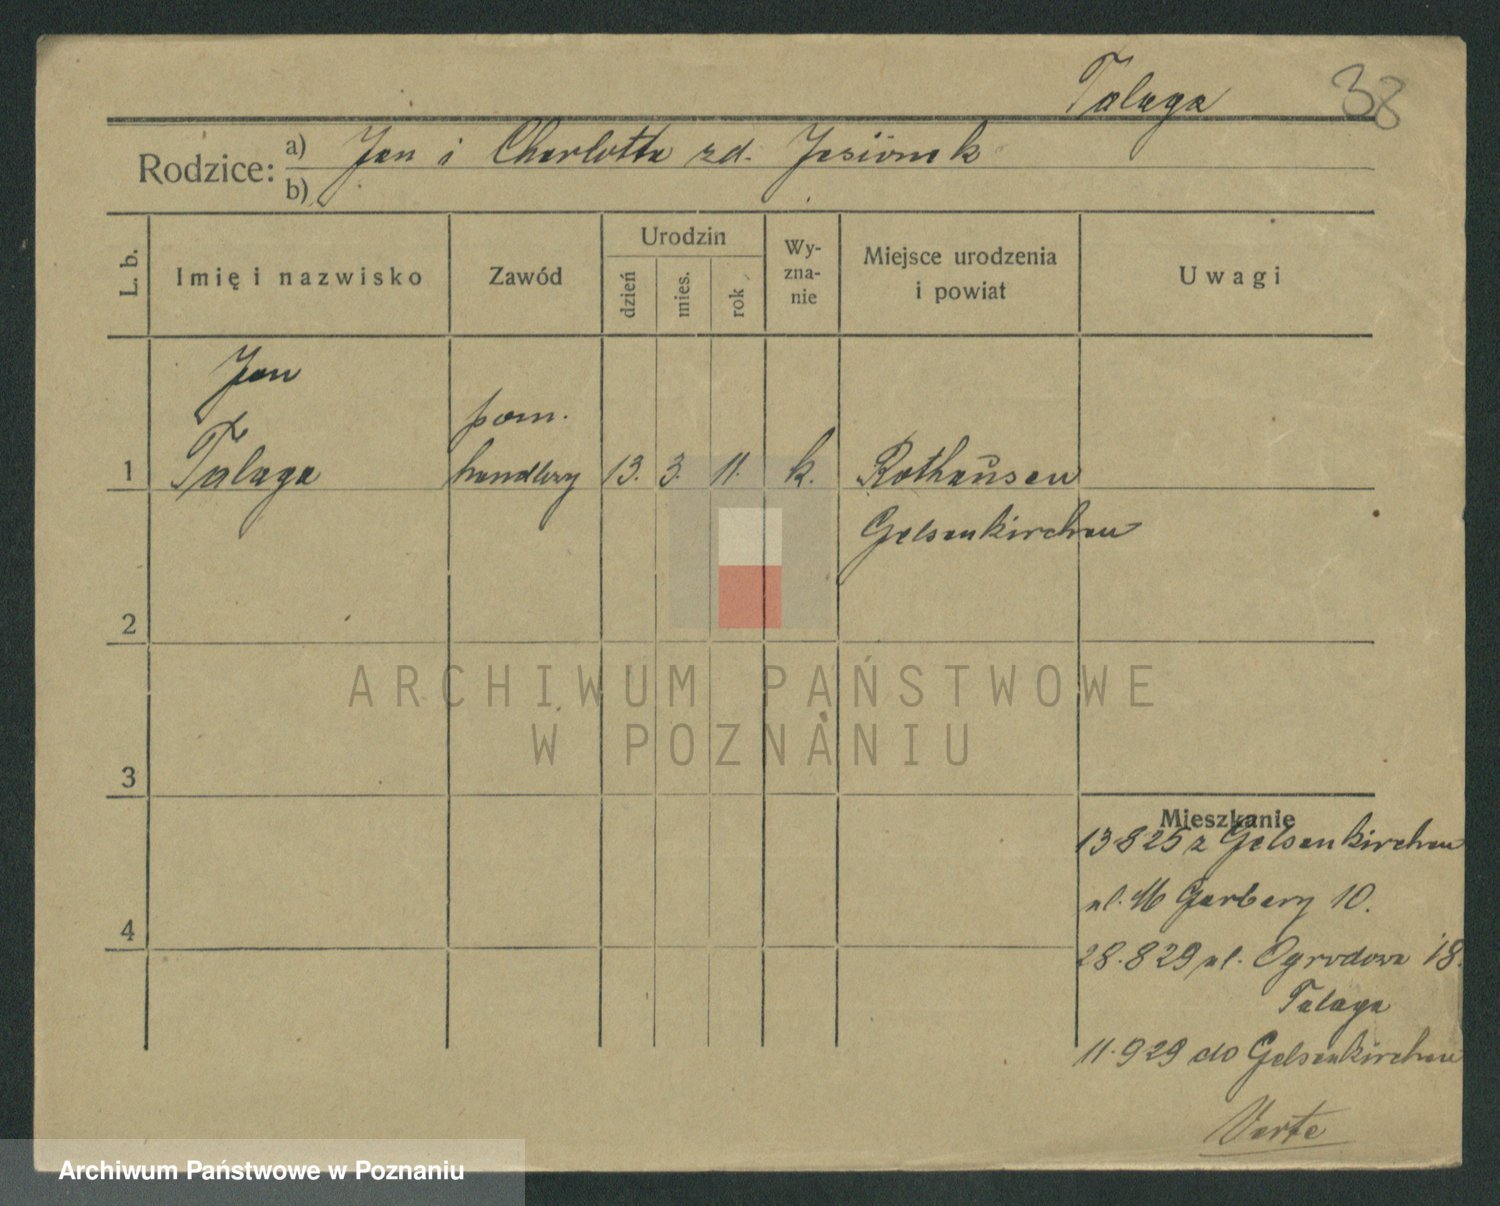 Talaga 38
Rodzice: a) Jan i Charlotta zd. Jesionek
b)
L. b. Imię i nazwisko Zawód Urodzin dzień mies. rok Wy-zna-nie Miejsce urodzenia i powiat Uwagi
Jan
pom.
1 Talaga handlowy 13. 3. 11. k. Rothausen
Gelsenkirchen
2
ARCHIWUM PAŃSTWOWE
W POZNANIU
3
Mieszkanie
13 8 25 z Gelsenkirchen
ul. W Garbary 10.
4
28. 8 29 ul. Ogrodowa 18.
Talaga
11. 9 29 do Gelsenkirchen
Verte
Archiwum Państwowe w Poznaniu